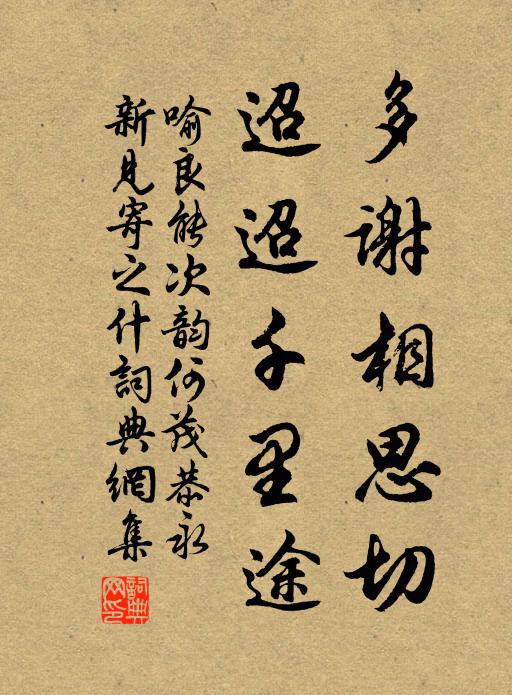 多謝相思切
迢迢千里途
喻良能次韵何茂恭永
新見寄之什詞典網集
詞典
网印